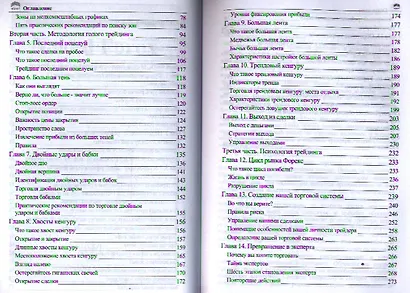 Оглавление
Зоны на мелкомасштабных графиках 78
Пять практических рекомендаций по поиску зон 84
Вторая часть. Методология голого трейдинга 94
Глава 5. Последний поцелуй 95
Что такое сделка на пробое 95
Что такое последний поцелуй 99
Трейдинг последним поцелуем 117
Глава 6. Большая тень 118
Как они выглядят 118
Верно ли, что больше - значит лучше 120
Стоп-лосс ордер 120
Открытие позиции 122
Важность цены закрытия 124
Пространство слева 127
Извлечение прибыли из больших теней 132
Правила 133
Глава 7. Двойные удары и бабки 135
Двойное дно 136
Двойная вершина 141
Идентификация двойных ударов и бабок 141
Торговля двойным ударом 144
Торговля бабками 152
Практические рекомендации по торговле двойным
ударами и бабками 155
Глава 8. Хвосты кенгуру 156
Что такое хвост кенгуру 156
Открытие и закрытие 156
Длинные хвосты кенгуру 157
Местоположение хвоста кенгуру 165
Взгляд налево 167
Остерегайтесь гигантских свечей 170
Открытие сделки 172
Уровни фиксирования прибыли 174
Глава 9. Большая лента 177
Что такое большая лента 177
Медвежья большая лента 182
Бычья большая лента 182
Характеристики настройки большой ленты
Глава 10. Трендовый кенгуру
Что такое трендовый кенгуру 191
Индикаторы тренда
Торговля трендовым кенгуру: места отдыха
Характеристики трендового кенгуру
Остерегайтесь ловушек трендового кенгуру
Глава 11. Выход из сделки 203
Выход с деньгами 203
Стратегии выхода 205
Управление выходами
Третья часть. Психология трейдинга 232
Глава 12. Цикл рынка Форекс 232
Что такое цикл погибели?
Жизнь в цикле
Разрушение цикла
Глава 13. Создание вашей торговой системы
Во что вы верите?
Правила риска
Управление вашими сделками
Понимание особенностей вашей личности трейдера
Определение вашей торговой системы 263
Глава 14. Превращение в эксперта
Почему вы хотите торговать
Тайна экспертов 267
Шесть этапов становления эксперта 268
Повторение действий 273